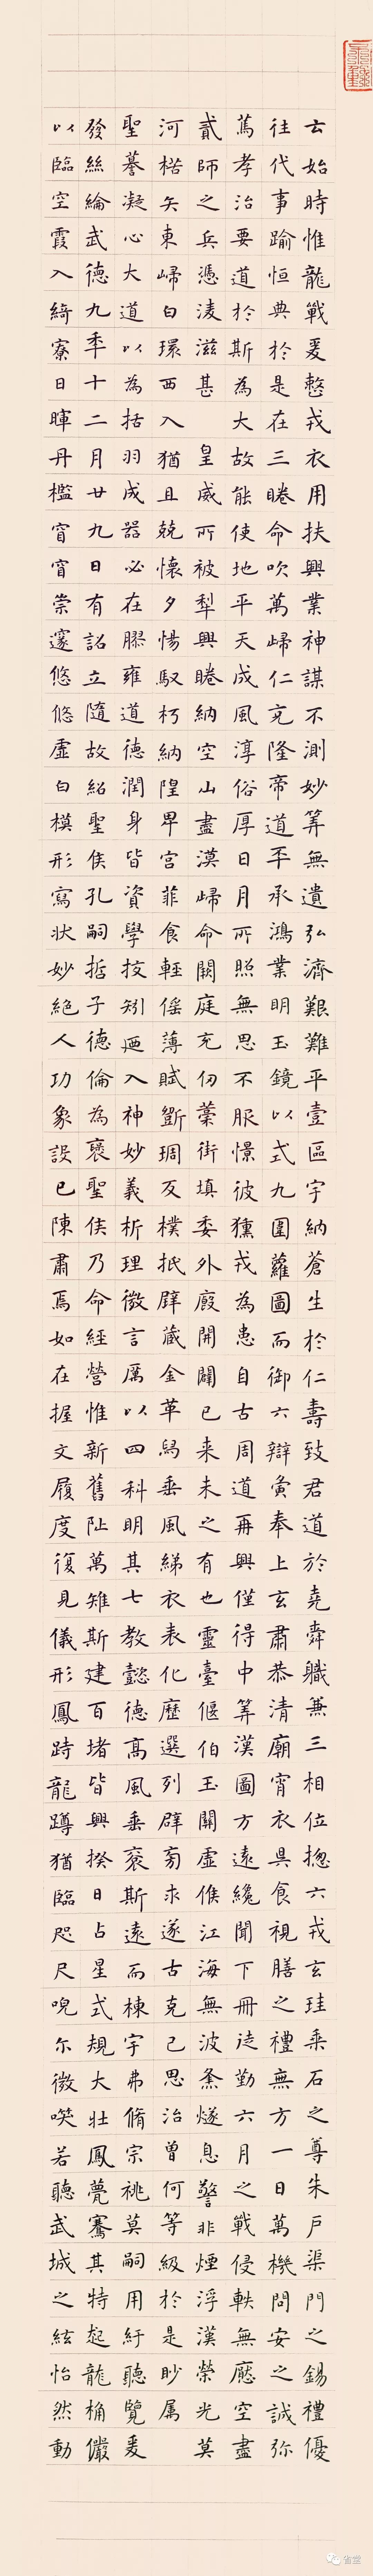 玄始時惟龍戰爰整戎衣用扶興業神謀不測妙筭無遺弘濟艱難平壹區宇納蒼生於仁壽致君道於堯舜職兼三相位揔六戎玄珪乘石之尊朱戶渠門之錫禮優
往代事踰恒典於是在三睠命吹萬歸仁克隆帝道丕承鴻業明玉鏡以式九圍蘿圖而御六辯寅奉上玄肅恭清廟宵衣昃食視膳之禮無方一日萬機問安之誠弥
篤孝治要道於斯為大故能使地平天成風淳俗厚日月所照無思不服憬彼獯戎為患自古周道再興僅得中筭漢圖方遠纔聞下冊徒勤六月之戰侵軼無厭空盡
貳師之兵憑凌滋甚 皇威所被犁興睠納空山盡漠歸命闕庭充仞藁街填委外廄開闢已来未之有也靈臺偃伯玉關虛候江海無波烽燧息警非煙浮漢榮光莫
河楛矢東歸白環西入猶且兢懷夕惕馭朽納隍卑宮菲食輕傜薄賦斲琱反樸抵璧藏金革舄垂風綈衣表化歷選列辟旁求遂古克己思治曾何等級於是眇属
聖謩凝心大道以為括羽成器必在膠雍道德潤身皆資學技矧迺入神妙義析理微言厲以四科明其七教懿德高風垂裒斯遠而棟宇弗脩宗祧莫嗣用紆聽覽爰
發絲綸武德九年十二月廿九日有詔立隨故紹聖侯孔嗣悊子德倫為褒聖侯乃命經營惟新舊阯萬雉斯建百堵皆興揆日占星式規大壯鳳甍騫其特起龍桷儼
以臨空霞入綺寮日暉丹檻窅窅崇邃悠悠虛白模形寫狀妙絕人功象設已陳肅焉如在握文履度復見儀形鳳跱龍蹲猶臨咫尺唲尔微咲若聽武城之絃怡然動
省堂